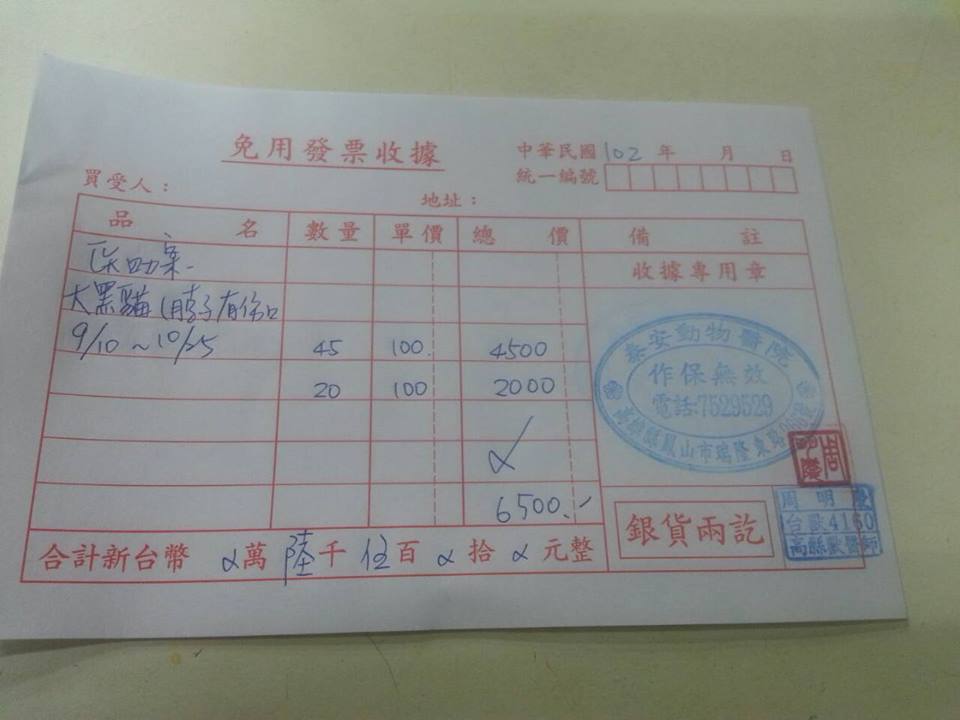 免用發票收據
中華民國102年 月 日
統一編號
買受人：
地址：
品名 數量 單價 總價 備註
收據專用章
大黑貓(脖子有傷口
9/10～10/25 45 100. 4500
20 100 2000
6500.-
泰安動物醫院
作保無效
電話:7529529
鳳山市瑞隆東路
銀貨兩訖
周明
台獸4160
高縣獸醫師
合計新台幣 萬陸千伍百 拾 元整